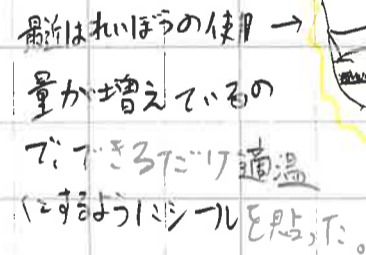 最近はれいぼうの使用
量が増えているの
で、できるだけ適温
にするようにシール
を貼った。